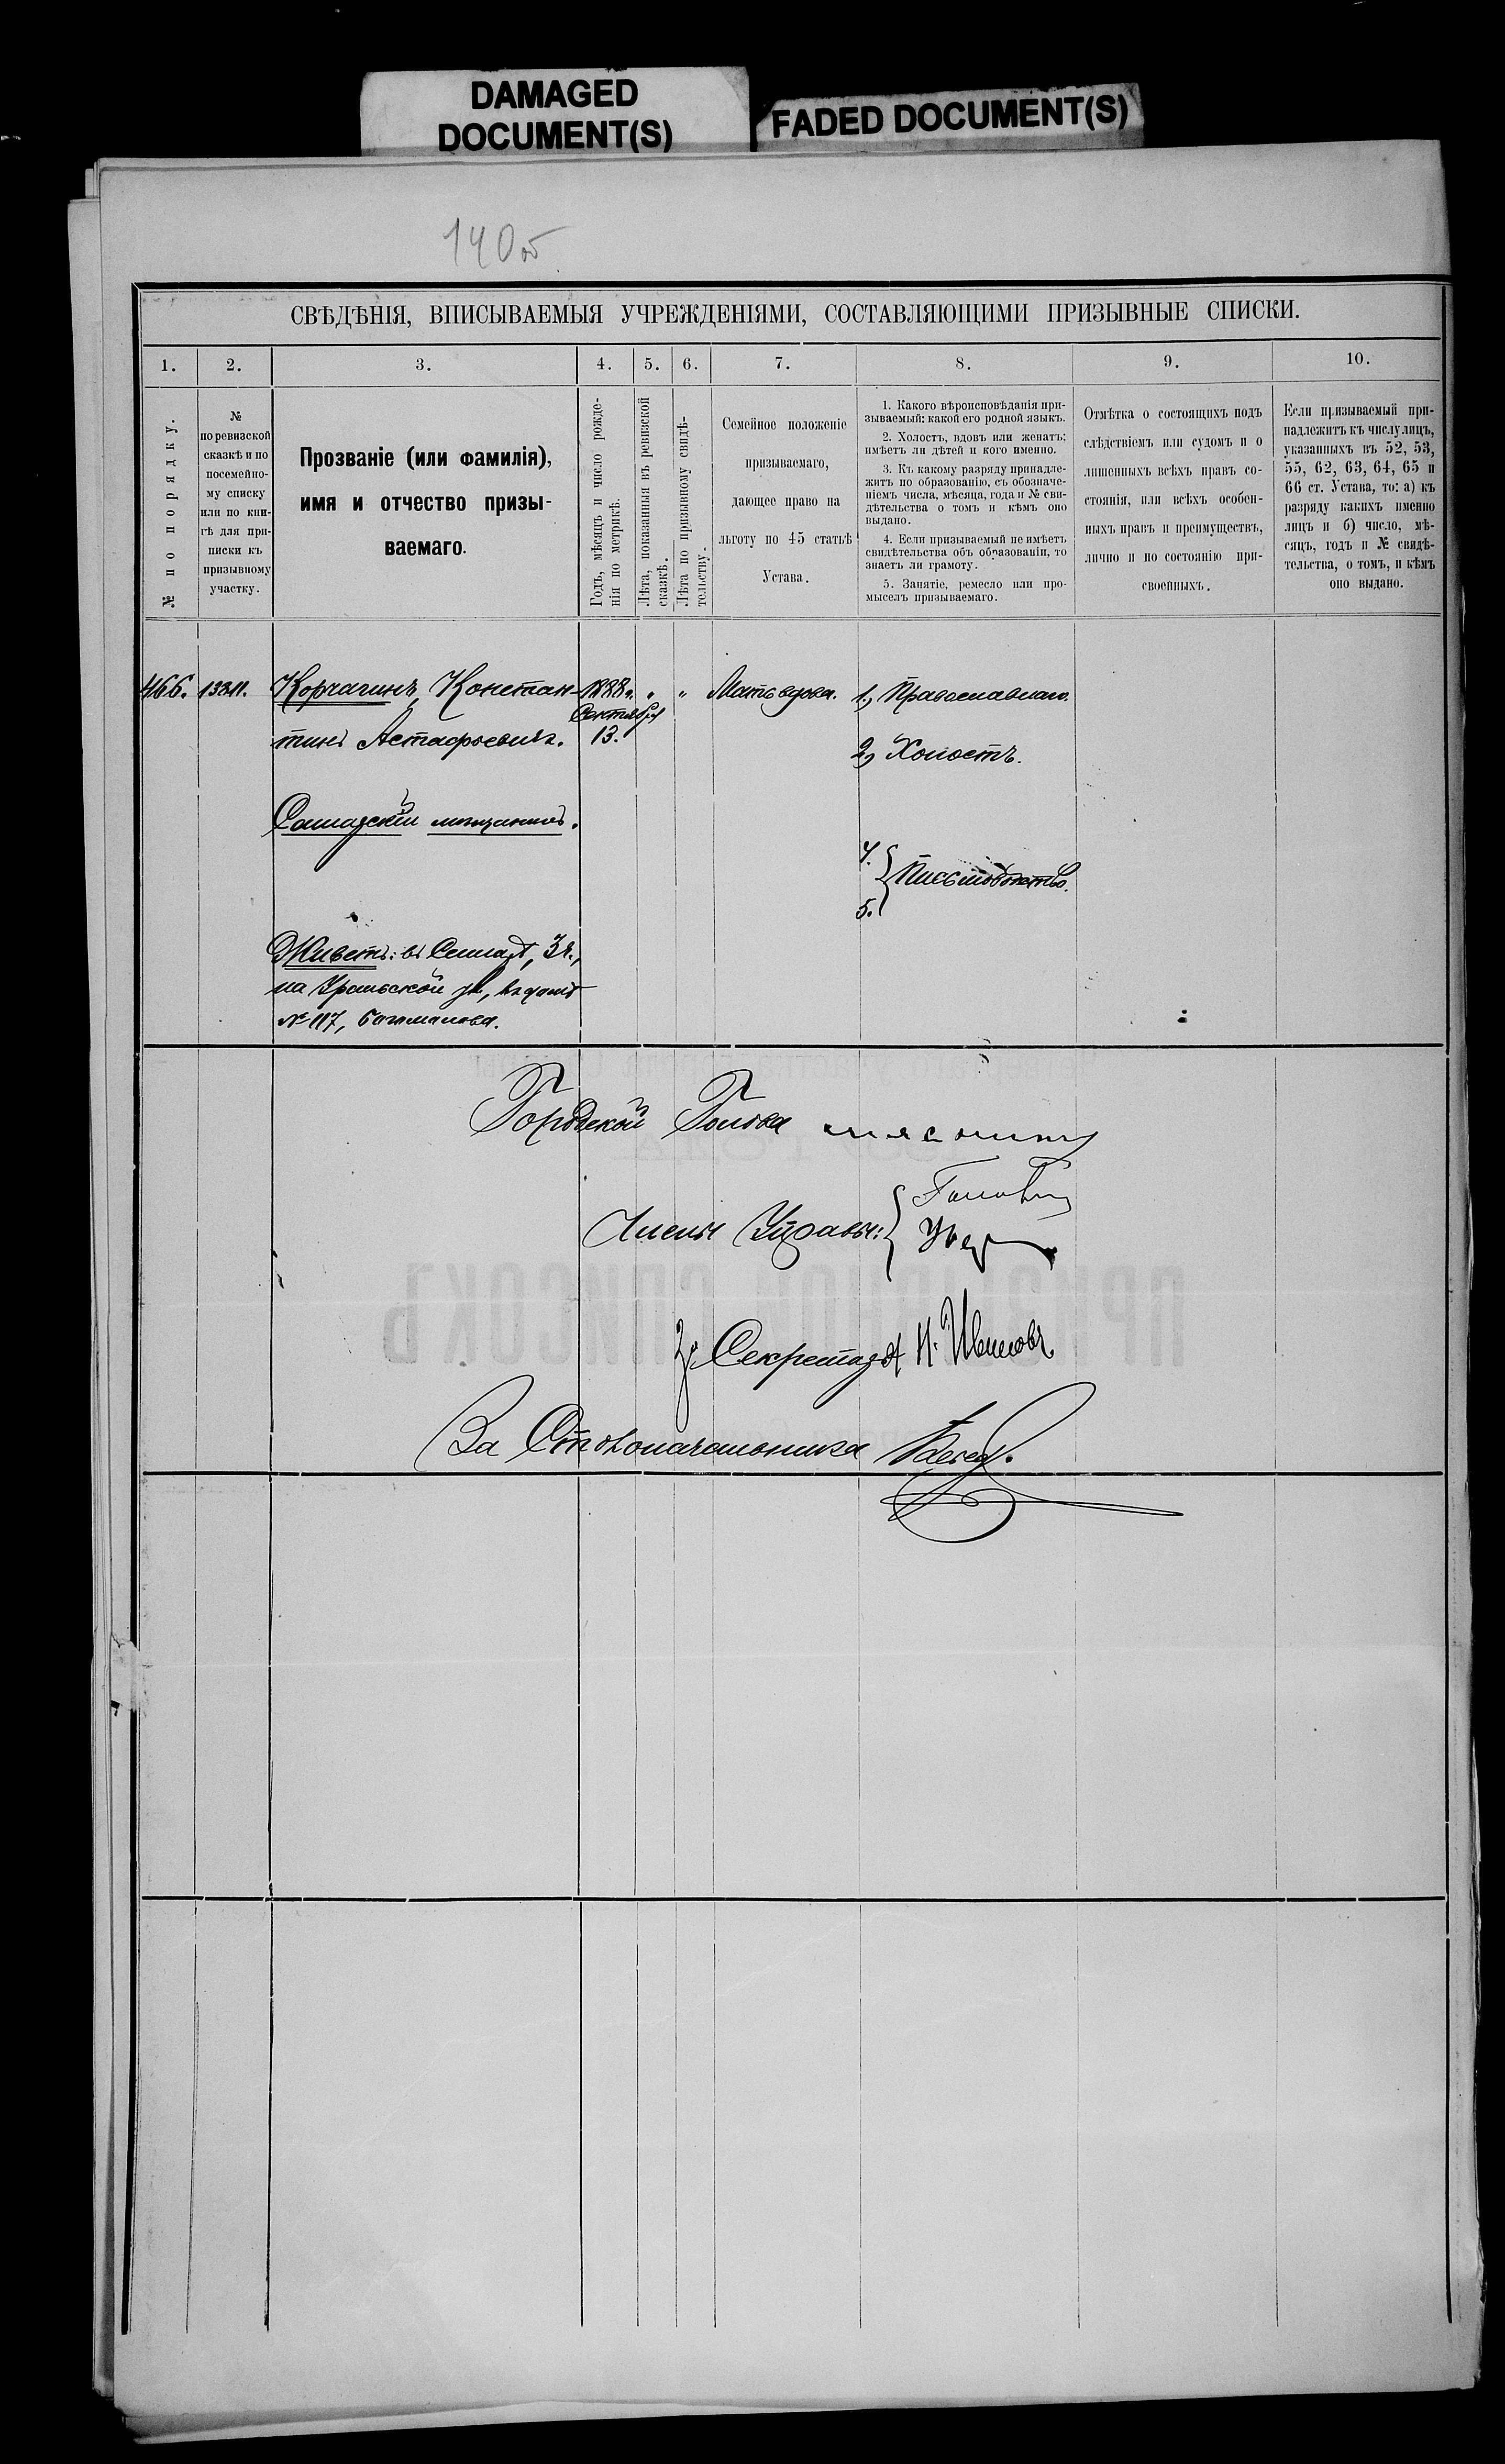 DAMAGED
DOCUMENT(S)
FADED DOCUMENT(S)
140об
СВѢДѢНІЯ, ВПИСЫВАЕМЫЯ УЧРЕЖДЕНІЯМИ, СОСТАВЛЯЮЩИМИ ПРИЗЫВНЫЕ СПИСКИ.
1. 2. 3. 4. 5. 6. 7. 8. 9. 10.
№ по порядку.
№
по ревизской
сказкѣ и по
посемейно-
му списку
или по кни-
гѣ для при-
писки къ
призывному
участку.
Прозваніе (или фамилія),
имя и отчество призы-
ваемаго.
Годъ, мѣсяцъ и число рожде-
нія по метрикѣ.
Лѣта, показанныя въ ревизской
сказкѣ.
Лѣта по призывному свидѣ-
тельству.
Семейное положеніе
призываемаго,
дающее право на
льготу по 45 статьѣ
Устава.
1. Какого вѣроисповѣданія при-
зываемый; какой его родной языкъ.
2. Холостъ, вдовъ или женатъ;
имѣетъ ли дѣтей и кого именно.
3. Къ какому разряду принадле-
житъ по образованію, съ обозначе-
ніемъ числа, мѣсяца, года и № сви-
дѣтельства о томъ и кѣмъ оно
выдано.
4. Если призываемый не имѣетъ
свидѣтельства объ образованіи, то
знаетъ ли грамоту.
5. Занятіе, ремесло или про-
мыселъ призываемаго.
Отмѣтка о состоящихъ подъ
слѣдствіемъ или судомъ и о
лишенныхъ всѣхъ правъ со-
стоянія, или всѣхъ особен-
ныхъ правъ и преимуществъ,
лично и по состоянію при-
своенныхъ.
Если призываемый при-
надлежитъ къ числу лицъ,
указанныхъ въ 52, 53,
55, 62, 63, 64, 65 и
66 ст. Устава, то: а) къ
разряду какихъ именно
лицъ и б) число, мѣ-
сяцъ, годъ и № свидѣ-
тельства, о томъ, и кѣмъ
оно выдано.
466. Корчагинъ, Констан-
тинъ Астафьевичъ.
1888 г.
Сентября
13.
" "
Мать вдова.
1., Православнаго.
2, Холостъ.
Самарскій мѣщанинъ.
4.
Письмоводство.
5.
Живетъ: въ Самарѣ, 3 ч.,
на Уральской ул., въ домѣ
№ 117,
Городской Голова
Члены Управы:
За Секретаря И. Ивановъ
За Столоначальника
ПРИЗЫВНОЙ СПИСОКЪ